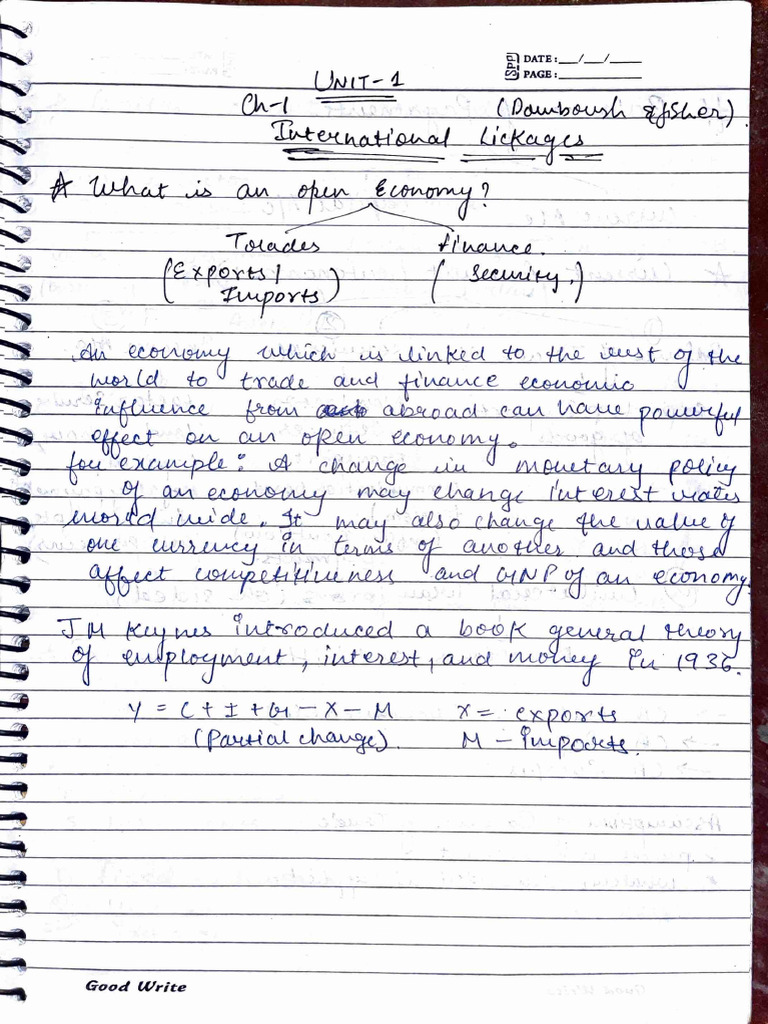 SPP DATE:__/__/____
PAGE:________
UNIT-1
Ch-1 (Dornboush & fisher)
International Lickages
What is an open Economy?
Trades finance.
(Exports/ (Security.)
Imports)
An economy which is linked to the rest of the
world to trade and finance economic
influence from abroad can have powerful
effect on an open economy.
for example: A change in monetary policy
of an economy may change interest rates
world wide. It may also change the value of
one currency in terms of another and those
affect competitiveness and GNP of an economy.
JM Keynes introduced a book general theory
of employment, interest, and money in 1936.
Y = C + I + G - X - M X = exports
(Partial change). M - imports.
Good Write